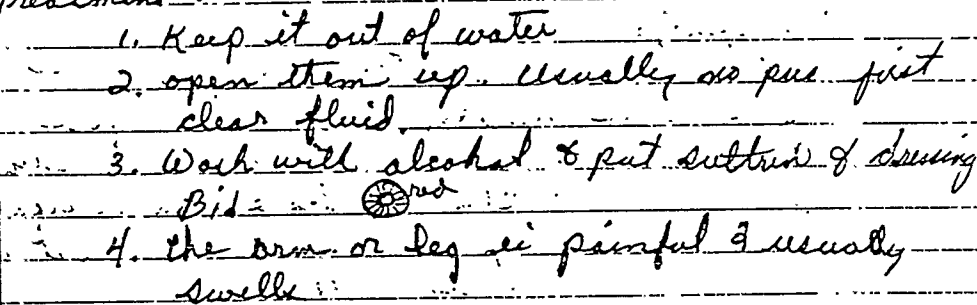 Treatment
1. Keep it out of water
2. open them up. usually no pus just
clear fluid.
3. Wash with alcohol & put suttrin & dressing
Bid red
4. the arm or leg is painful & usually
swells